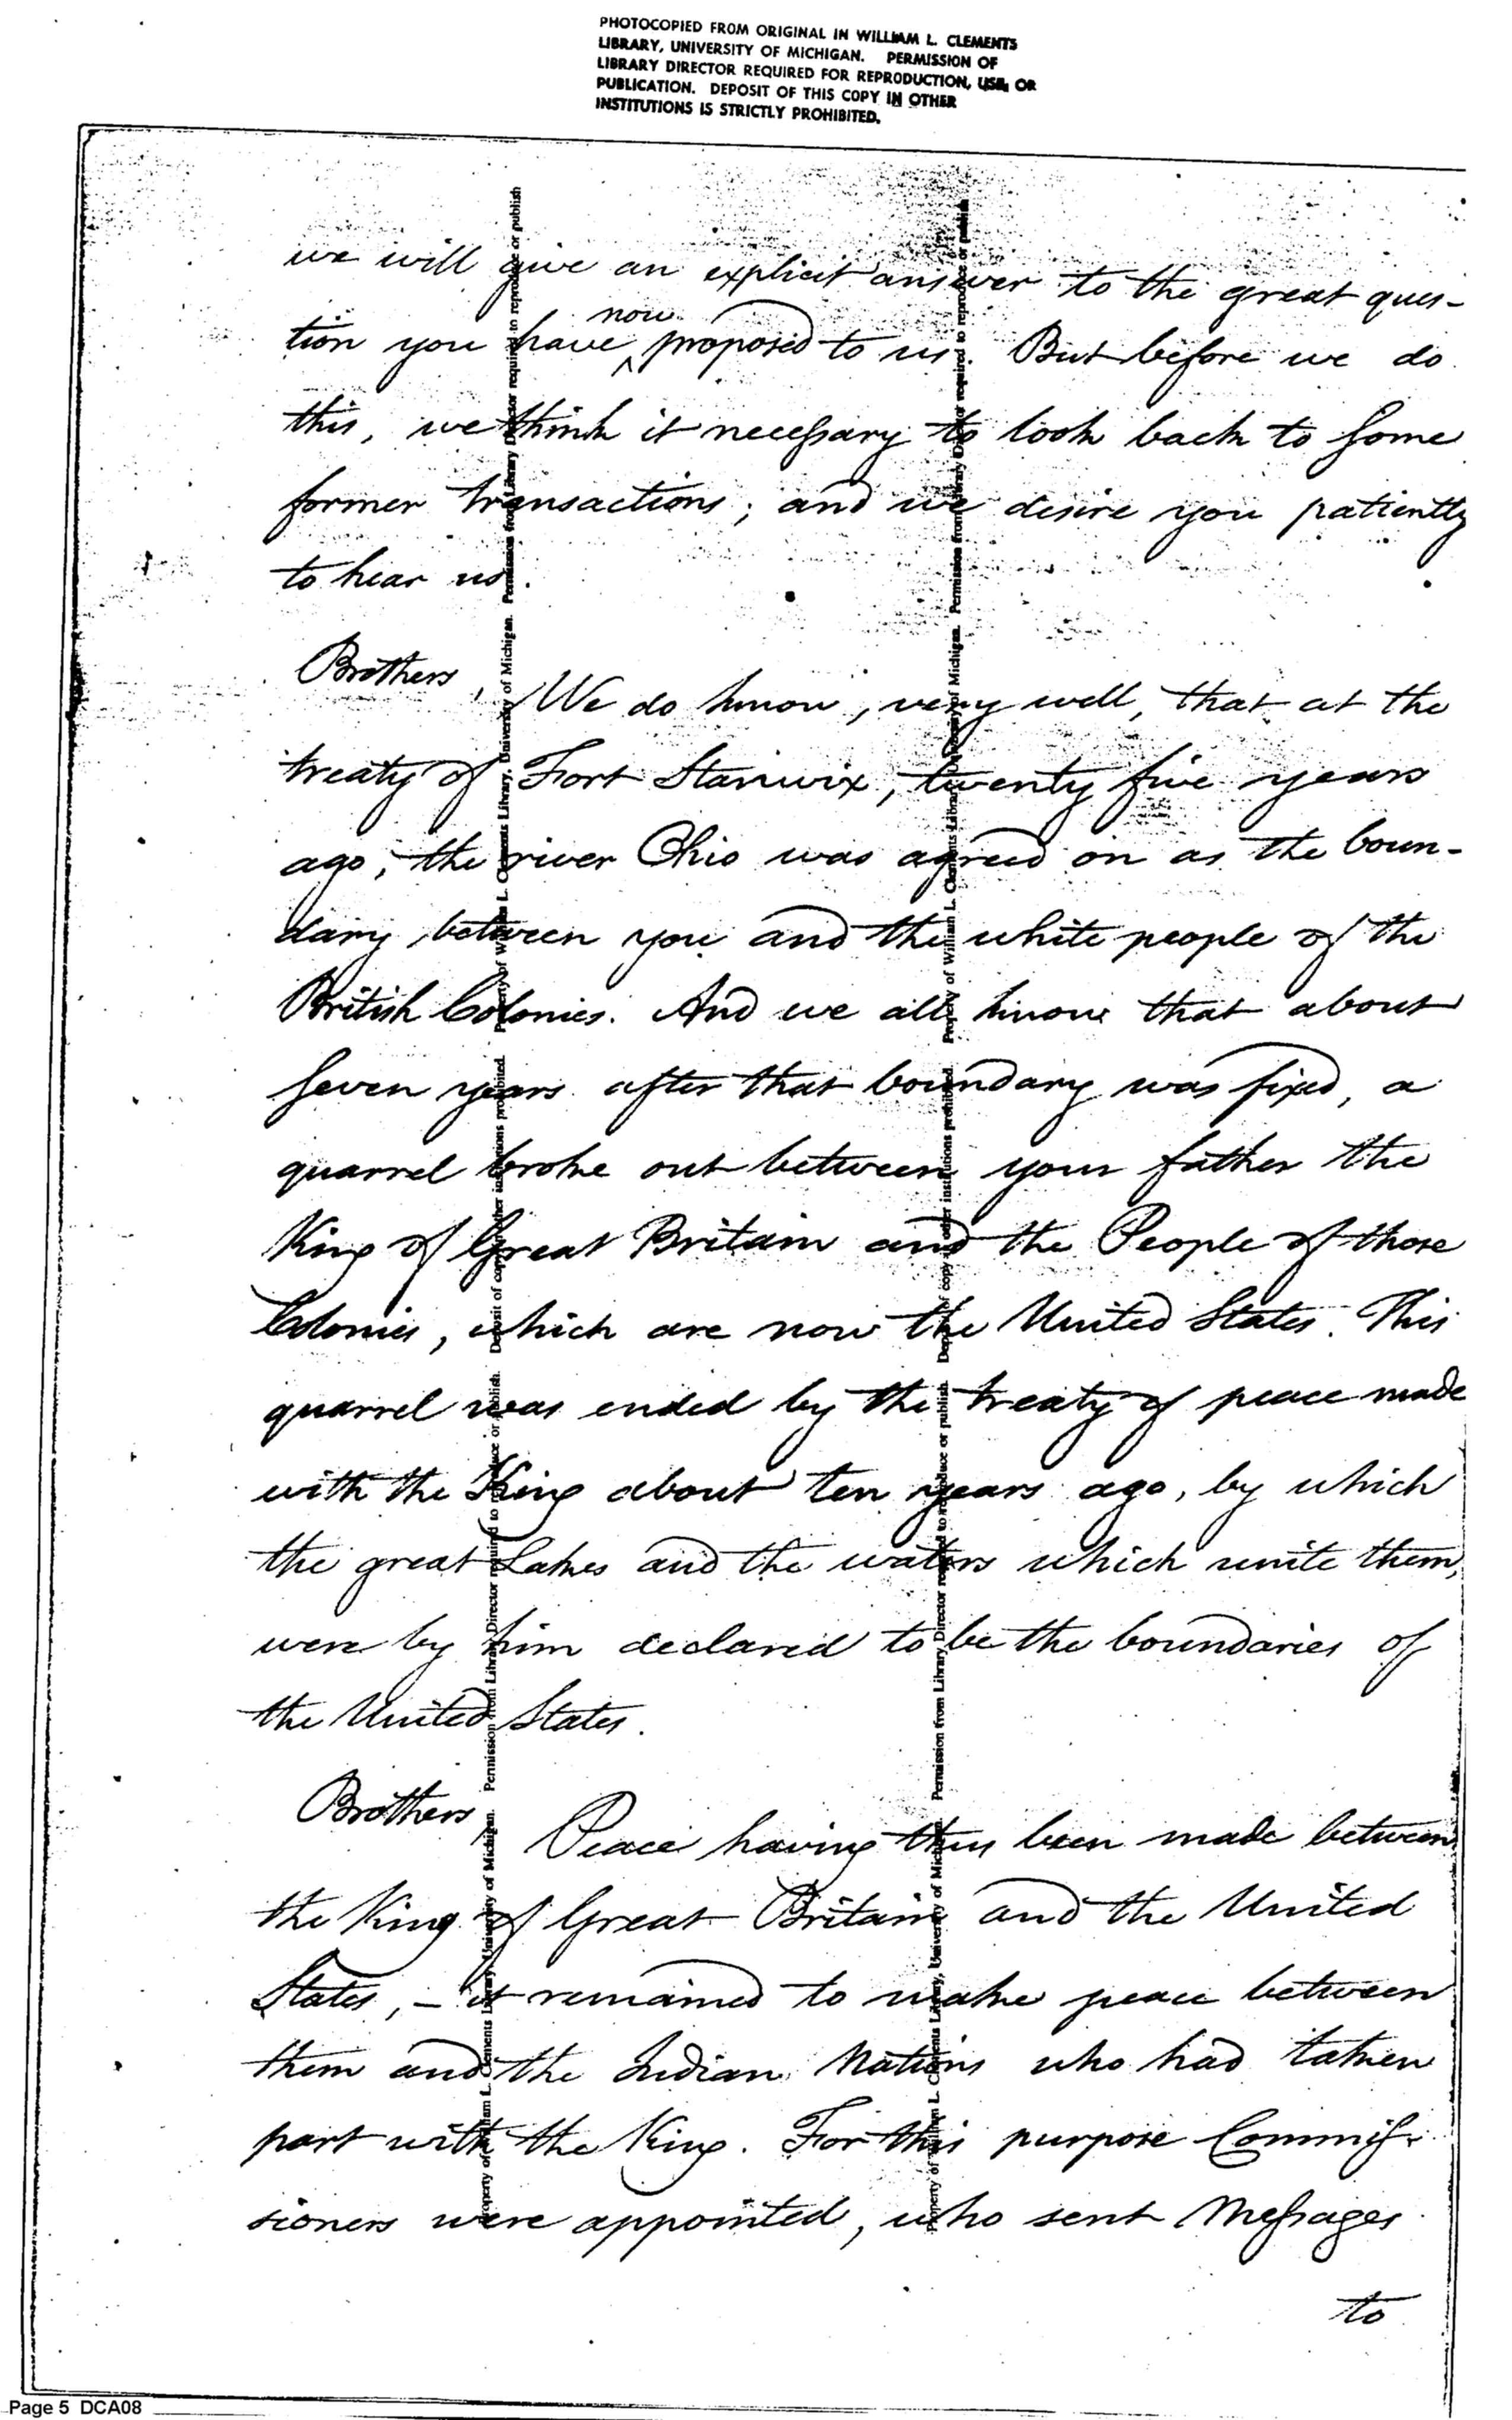 PHOTOCOPIED FROM ORIGINAL IN WILLIAM L. CLEMENTS
LIBRARY, UNIVERSITY OF MICHIGAN. PERMISSION OF
LIBRARY DIRECTOR REQUIRED FOR REPRODUCTION, USE, OR
PUBLICATION. DEPOSIT OF THIS COPY IN OTHER
INSTITUTIONS IS STRICTLY PROHIBITED.
we will give an explicit answer to the great ques-
tion you have now proposed to us. But before we do
this, we think it necessary to look back to some
former transactions; and we desire you patiently
to hear us.
Brothers,
We do know, very well, that at the
treaty of Fort Stanwix, twenty five years
ago, the river Ohio was agreed on as the boun-
dary between you and the white people of the
British Colonies. And we all know that about
seven years after that boundary was fixed, a
quarrel broke out between your father the
King of Great Britain and the People of those
Colonies, which are now the United States. This
quarrel was ended by the treaty of peace made
with the King about ten years ago, by which
the great Lakes and the waters which unite them,
were by him declared to be the boundaries of
the United States.
Brothers,
Peace having thus been made between
the King of Great Britain and the United
States, – it remained to make peace between
them and the Indian Nations who had taken
part with the King. For this purpose Commis-
sioners were appointed, who sent Messages
to
Property of William L. Clements Library, University of Michigan. Permission from Library Director required to reproduce or publish. Deposit of copy in other institutions prohibited. Property of William L. Clements Library, University of Michigan. Permission from Library Director required to reproduce or publish
Property of William L. Clements Library, University of Michigan. Permission from Library Director required to reproduce or publish. Deposit of copy in other institutions prohibited. Property of William L. Clements Library, University of Michigan. Permission from Library Director required to reproduce or publish
Page 5 DCA08